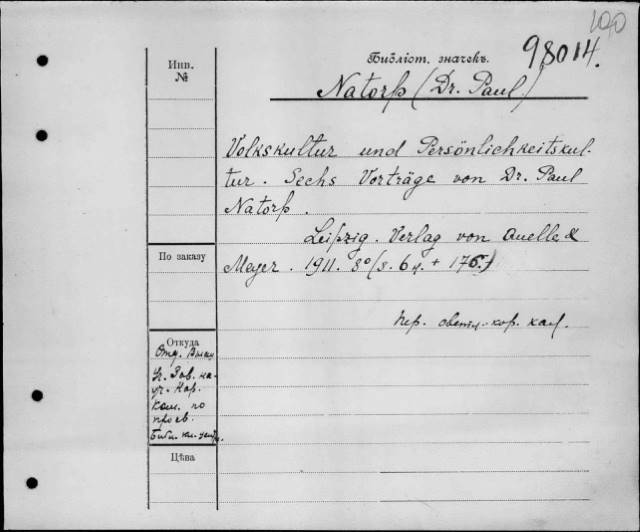 100
98014.
Инв.
№
Библіот. значекъ.
Natorp (Dr. Paul)
Volkskultur und Persönlichkeitskul-
tur. Sechs Vorträge von Dr. Paul
Natorp.
Leipzig. Verlag von Quelle &
Meyer. 1911. 8° (s. 6 + 176.)
По заказу
пер. светл.-кор. кал.
Откуда
Отд.
Кар.
Ком. по
просв.
Цѣна